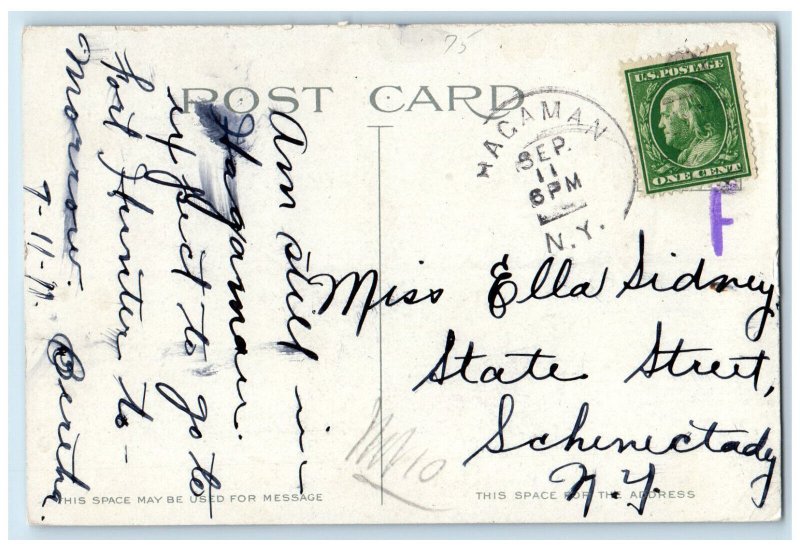 75
POST CARD
U.S. POSTAGE
ONE CENT
HAGAMAN
SEP.
11
6 PM
N.Y.
F
Am still in-
Hagaman.
expect to go to
Fort Hunter to-
morrow. Beretha.
9-11-11.
Miss Ella Sidney.
State Street,
Schenectady
N.Y.
THIS SPACE MAY BE USED FOR MESSAGE
THIS SPACE FOR THE ADDRESS